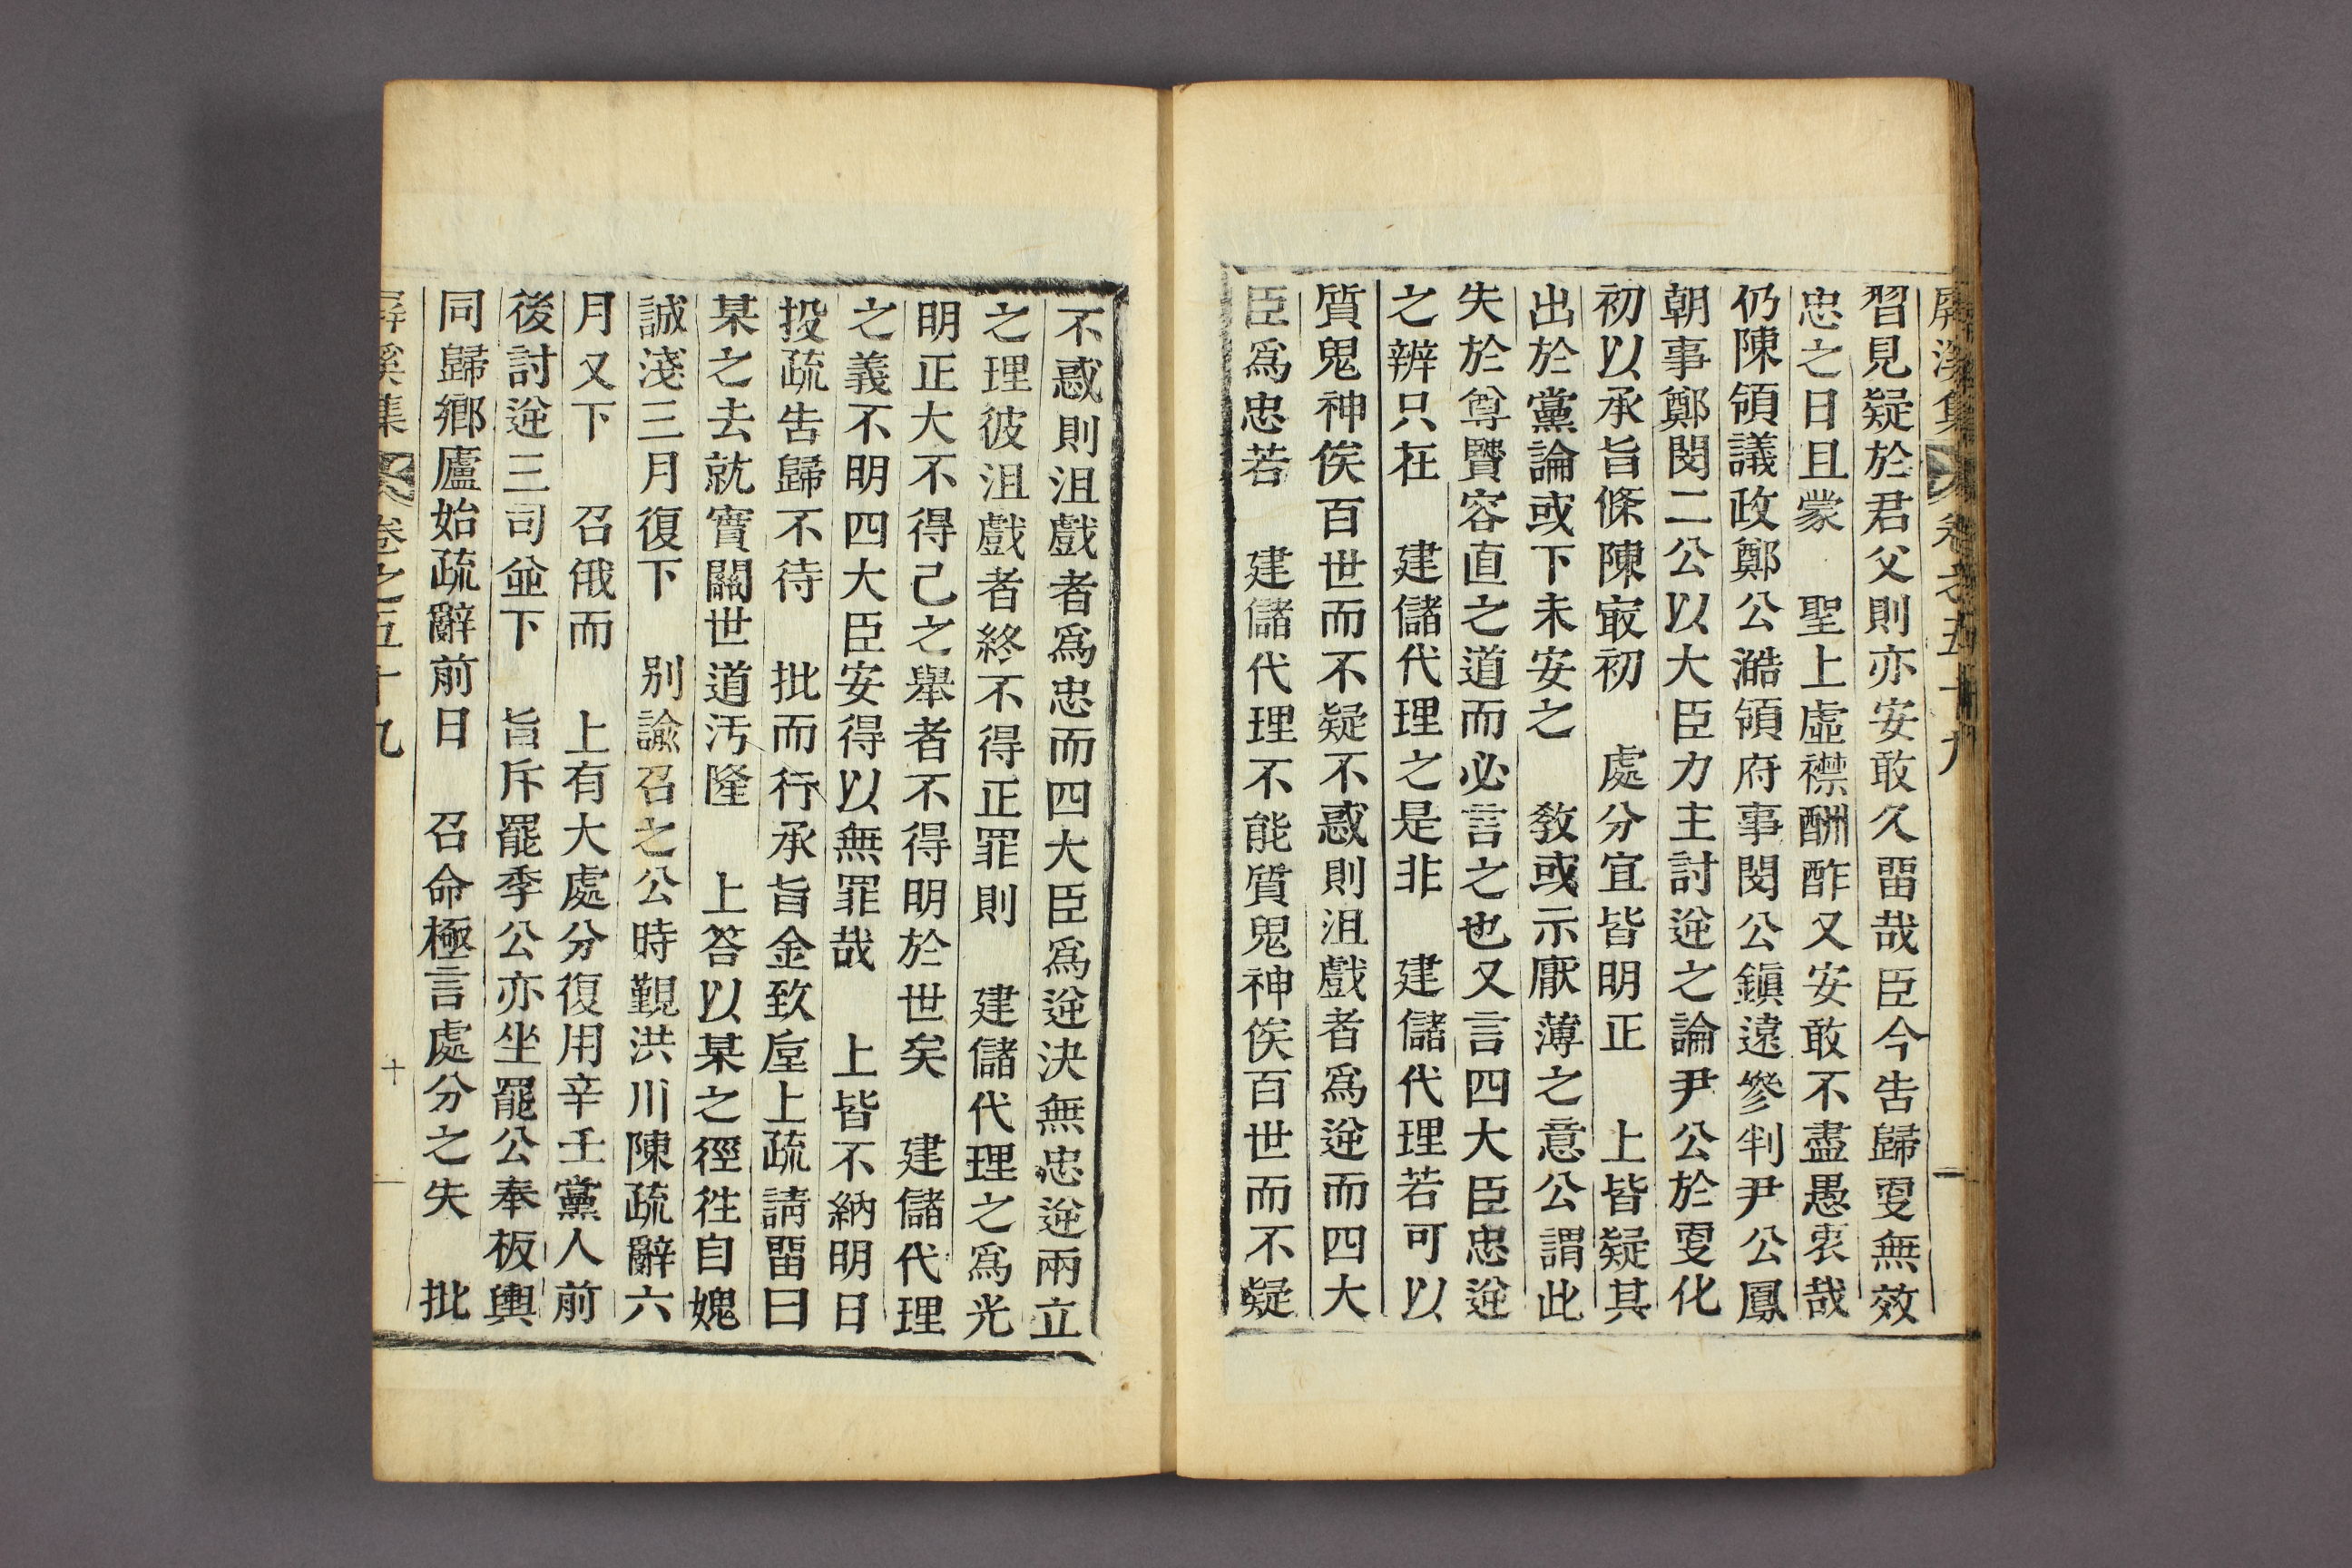 屛溪集 卷之五十九
習見疑於君父則亦安敢久畱哉臣今告歸㪅無效
忠之日且蒙 聖上虛襟酬酢又安敢不盡愚衷哉
仍陳領議政鄭公澔領府事閔公鎭遠參判尹公鳳
朝事鄭閔二公以大臣力主討逆之論尹公於㪅化
初以承旨條陳㝡初 處分宜皆明正 上皆疑其
出於黨論或下未安之 敎或示厭薄之意公謂此
失於尊賢容直之道而必言之也又言四大臣忠逆
之辨只在 建儲代理之是非 建儲代理若可以
質鬼神俟百世而不疑不惑則沮戲者爲逆而四大
臣爲忠若 建儲代理不能質鬼神俟百世而不疑
不惑則沮戲者爲忠而四大臣爲逆決無忠逆兩立
之理彼沮戲者終不得正罪則 建儲代理之爲光
明正大不得已之舉者不得明於世矣 建儲代理
之義不明四大臣安得以無罪哉 上皆不納明日
投疏告歸不待 批而行承旨金致垕上疏請畱曰
某之去就實關世道汚隆 上答以某之徑徃自媿
誠淺三月復下 別諭召之公時觀洪川陳疏辭六
月又下 召俄而 上有大處分復用辛壬黨人前
後討逆三司並下 旨斥罷季公亦坐罷公奉板輿
同歸鄕廬始疏辭前日 召命極言處分之失 批
屛溪集 卷之五十九 十